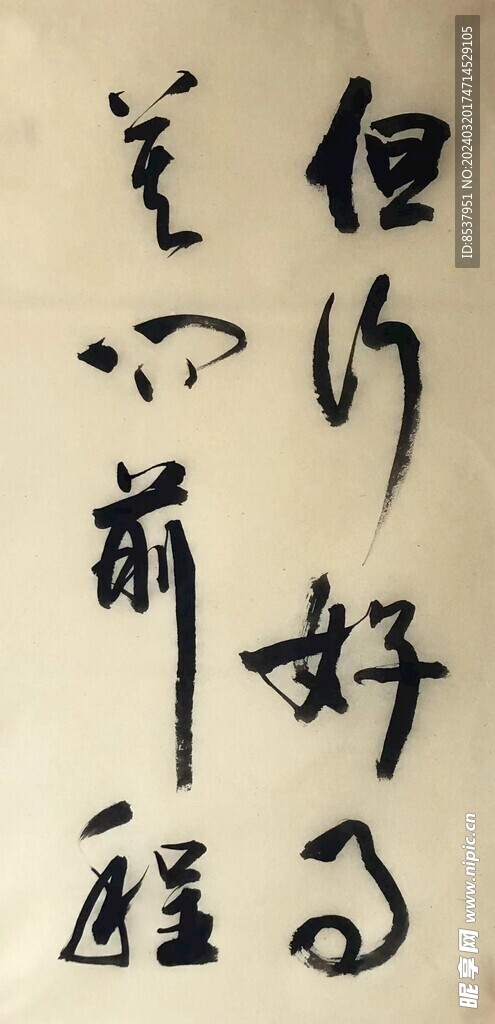 但行好事
莫问前程
ID:8537951 NO:20240320174714529105
昵享网 www.nipic.cn